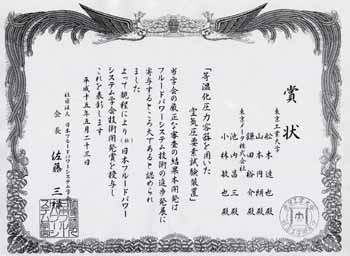 賞状
東京工業大学
松本 達也殿
山本 円朗殿
鎌田 裕介殿
東京メータ株式会社
池内 昌三殿
小林 敏也殿
「等温化圧力容器を用いた
空気圧要素試験装置」
当学会の厳正な審査の結果本開発は
フルードパワーシステム技術の進歩発展に
寄与するところ大であると認められ
ました
よって規程により(社)日本フルードパワー
システム学会技術開発賞を授与し
これを表彰します
平成十五年五月二十三日
社団法人 日本フルードパワーシステム学会
会長 佐藤 三